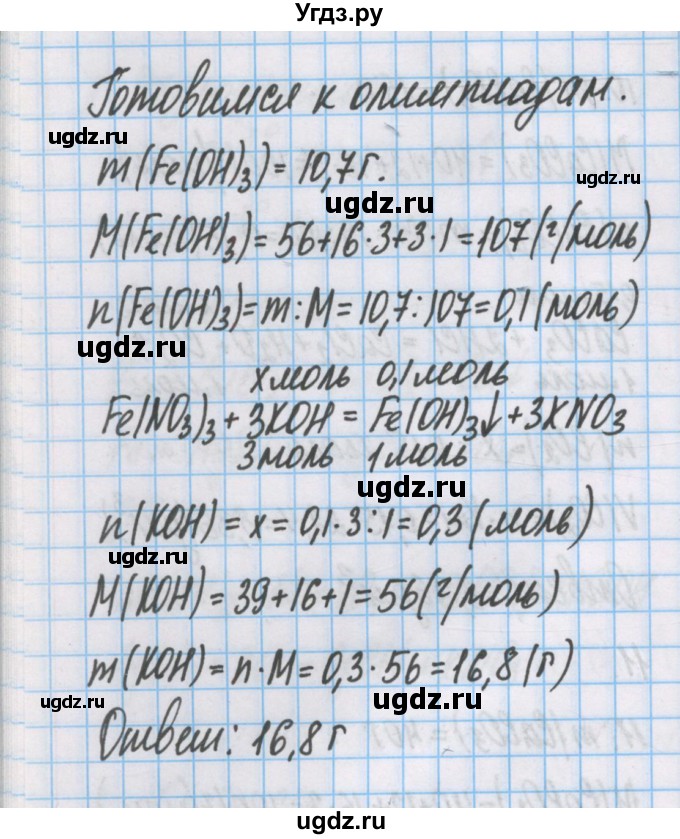 Угдз.ру
Готовимся к олимпиадам.
ugdz.ru
m(Fe(OH)₃) = 10,7г.
ugdz.ru
ugdz.ru
M(Fe(OH)₃) = 56+16·3+3·1 = 107(г/моль)
n(Fe(OH)₃) = m : M = 10,7 : 107 = 0,1 (моль)
ugdz.ru
x моль 0,1 моль
Fe(NO₃)₃ + 3KOH = Fe(OH)₃↓ + 3KNO₃
3 моль 1 моль
ugdz.ru
n(KOH) = x = 0,1·3:1 = 0,3 (моль)
ugdz.ru
M(KOH) = 39+16+1 = 56(г/моль)
m(KOH) = n·M = 0,3·56 = 16,8 (г)
ugdz.ru
ugdz.ru
Ответ: 16,8 г
ugdz.ru
ugdz.ru